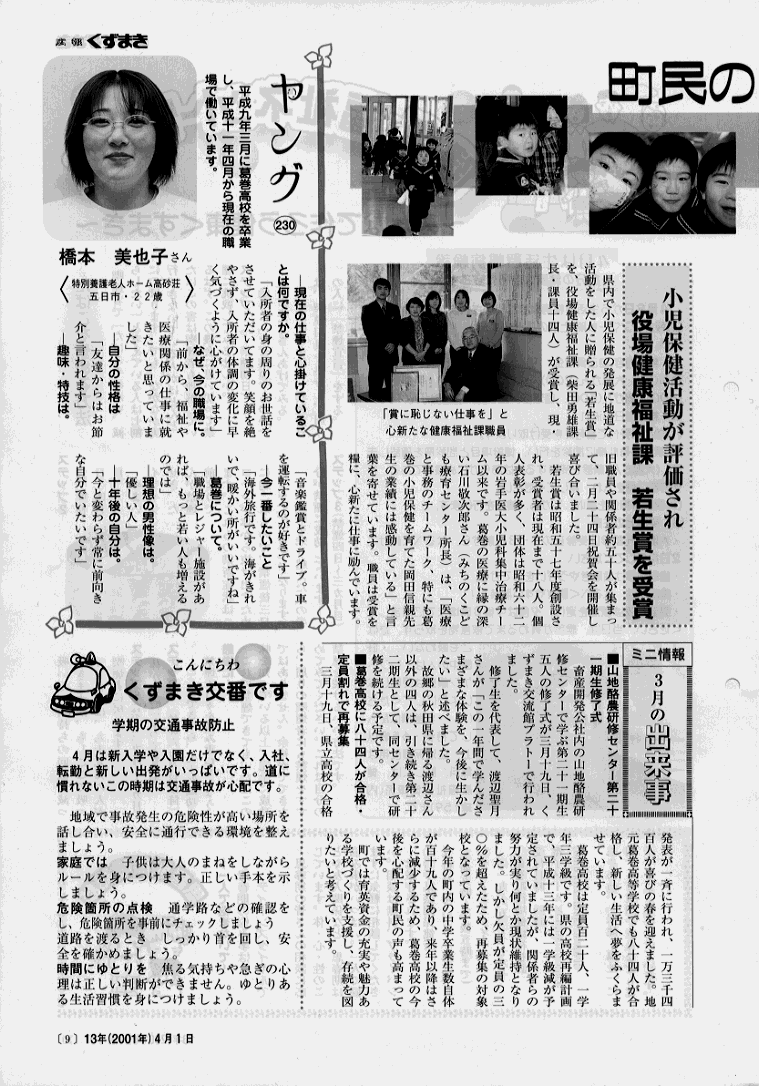 広報くずまき
町民の
小児保健活動が評価され
役場健康福祉課 若生賞を受賞
県内で小児保健の発展に地道な
活動をした人に贈られる「若生賞」
を、役場健康福祉課(柴田勇雄課
長・課員十四人)が受賞し、現・
旧職員や関係者約五十人が集まっ
て、二月二十四日祝賀会を開催し
喜び合いました。
若生賞は昭和五十七年度創設さ
れ、受賞者は現在まで十八人。個
人表彰が多く、団体は昭和六十二
年の岩手医大小児科集中治療チー
ム以来です。葛巻の医療に縁の深
い石川敬次郎さん(みちのくこど
も療育センター所長)は、「医療
と事務のチームワーク、特にも葛
巻の小児保健を育てた岡田信親先
生の業績には感動している」と言
葉を寄せています。職員は受賞を
糧に、心新たに仕事に励んでいます。
「賞に恥じない仕事を」と
心新たな健康福祉課職員
ヤング
230
平成九年三月に葛巻高校を卒業
し、平成十一年四月から現在の職
場で働いています。
橋本 美也子さん
特別養護老人ホーム高砂荘
五日市・22歳
―現在の仕事と心掛けているこ
とは何ですか。
「入所者の身の周りのお世話を
させていただいてます。笑顔を絶
やさず、入所者の体調の変化に早
く気づくように心がけています」
―なぜ、今の職場に。
「前から、福祉や
医療関係の仕事に就
きたいと思っていま
した」
―自分の性格は
「友達からはお節
介と言われます」
―趣味・特技は。
「音楽鑑賞とドライブ。車
を運転するのが好きです」
―今一番したいこと
「海外旅行です。海がきれ
いで、暖かい所がいいですね」
―葛巻について。
「職場とレジャー施設があ
れば、もっと若い人も増える
のでは」
―理想の男性像は。
「優しい人」
―十年後の自分は。
「今と変わらず常に前向き
な自分でいたいです」
ミニ情報
3月の出来事
■山地酪農研修センター第二十
一期生修了式
畜産開発公社内の山地酪農研
修センターで学ぶ第二十一期生
五人の修了式が三月十九日、く
ずまき交流館プラトーで行われ
ました。
修了生を代表して、渡辺聖月
さんが「この一年間で学んださ
まざまな体験を、今後に生かし
たい」と述べました。
故郷の秋田県に帰る渡辺さん
以外の四人は、引き続き第二十
二期生として、同センターで研
修を続ける予定です。
■葛巻高校に八十四人が合格・
定員割れで再募集
三月十九日、県立高校の合格
発表が一斉に行われ、一万三千四
百人が喜びの春を迎えました。地
元葛巻高等学校でも八十四人が合
格し、新しい生活へ夢をふくらま
せています。
葛巻高校は定員百二十人、一学
年三学級です。県の高校再編計画
で、平成十三年には一学級減が予
定されていましたが、関係者らの
努力が実り何とか現状維持となり
ました。しかし欠員が定員の三
〇%を超えたため、再募集の対象
校となっています。
今年の町内の中学卒業生数自体
が百十九人であり、来年以降はさ
らに減少するため、葛巻高校の今
後を心配する町民の声も高まって
います。
町では育英資金の充実や魅力あ
る学校づくりを支援し、存続を図
りたいと考えています。
こんにちわ
くずまき交番です
学期の交通事故防止
4月は新入学や入園だけでなく、入社、
転勤と新しい出発がいっぱいです。道に
慣れないこの時期は交通事故が心配です。
地域で事故発生の危険性が高い場所を
話し合い、安全に通行できる環境を整え
ましょう。
家庭では 子供は大人のまねをしながら
ルールを身につけます。正しい手本を示
しましょう。
危険箇所の点検 通学路などの確認を
し、危険箇所を事前にチェックしましょう
道路を渡るとき しっかり首を回し、安
全を確かめましょう。
時間にゆとりを 焦る気持ちや急ぎの心
理は正しい判断ができません。ゆとりあ
る生活習慣を身につけましょう。
〔9〕 13年(2001年)4月1日